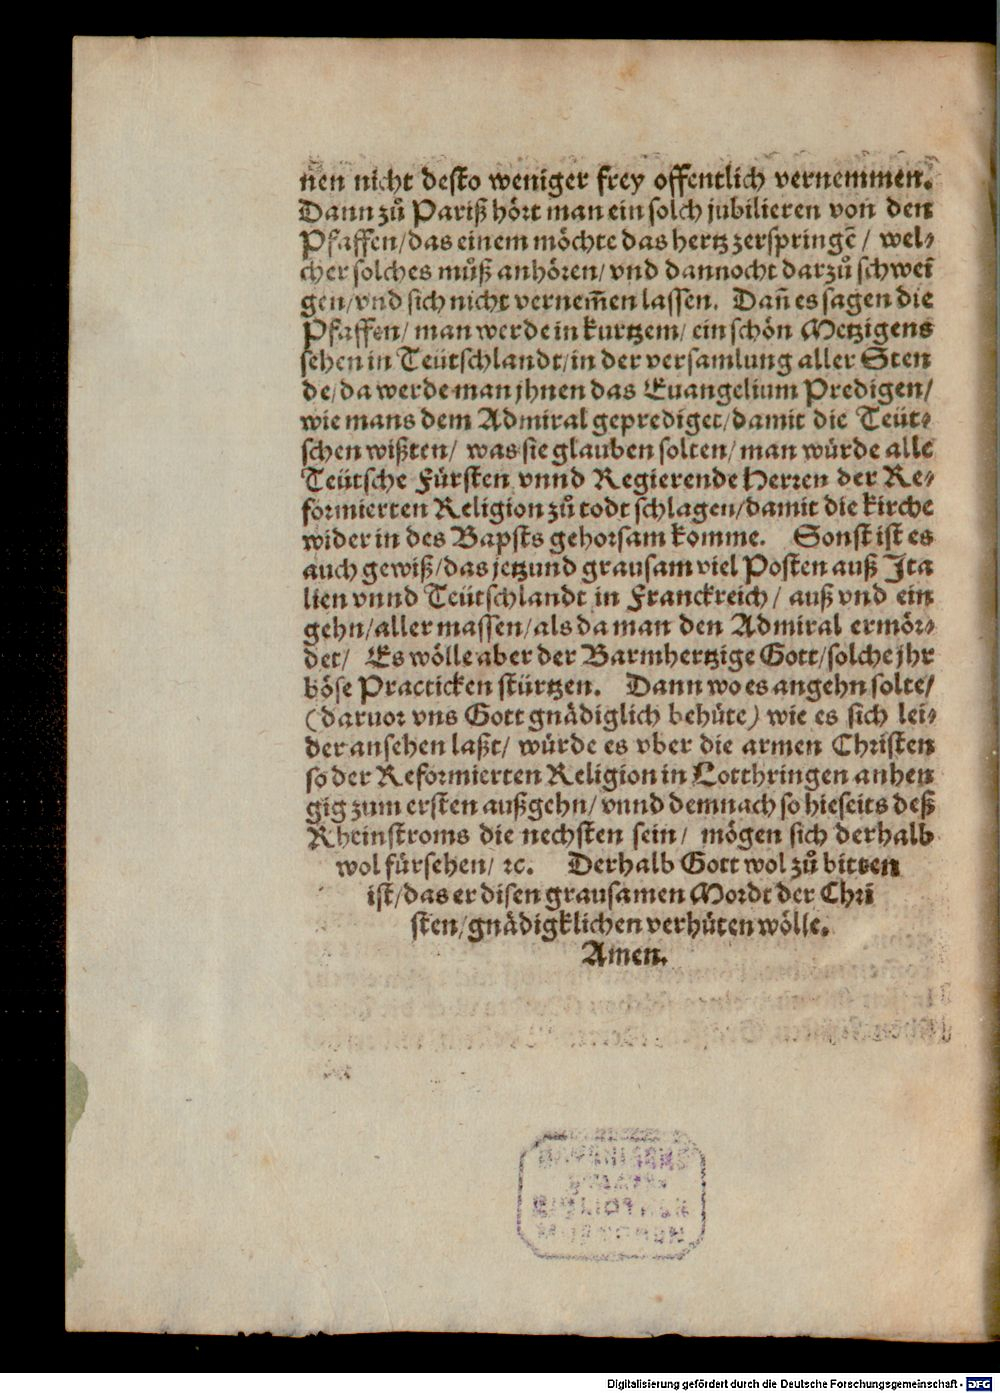 nen nicht desto weniger frey offentlich vernemmen.
Dann zuͦ Pariß hört man ein solch jubilieren von den
Pfaffen/das einem möchte das hertz zerspringē/ wel⸗
cher solches muͦß anhören/ vnd dannocht darzuͦ schwei
gen/vnd sich nicht vernem̄en lassen. Dañ es sagen die
Pfaffen/ man werde in kurtzem/ ein schön Metzigens
sehen in Teütschlandt/in der versamlung aller Sten
de/da werde man jhnen das Euangelium Predigen/
wie mans dem Admiral geprediget/damit die Teüt⸗
schen wißten/ was sie glauben solten/ man würde alle
Teütsche Fürsten vnnd Regierende Herren der Re⸗
formierten Religion zuͦ todt schlagen/damit die kirche
wider in des Bapsts gehorsam komme. Sonst ist es
auch gewiß/das jetzund grausam viel Posten auß Ita
lien vnnd Teütschlandt in Franckreich/ auß vnd ein
gehn/aller massen/als da man den Admiral ermör⸗
det/ Es wölle aber der Barmhertzige Gott/solche jhr
böse Practicken stürtzen. Dann wo es angehn solte/
(daruor vns Gott gnädiglich behüte) wie es sich lei⸗
der ansehen laßt/ würde es vber die armen Christen
so der Reformierten Religion in Lotthringen anhen
gig zum ersten außgehn/ vnnd demnach so hieseits deß
Rheinstroms die nechsten sein/ mögen sich derhalb
wol fürsehen/ ꝛc. Derhalb Gott wol zuͦ bitten
ist/das er disen grausamen Mordt der Chri
sten/gnädigklichen verhüten wölle.
Amen.
Digitalisierung gefördert durch die Deutsche Forschungsgemeinschaft - DFG